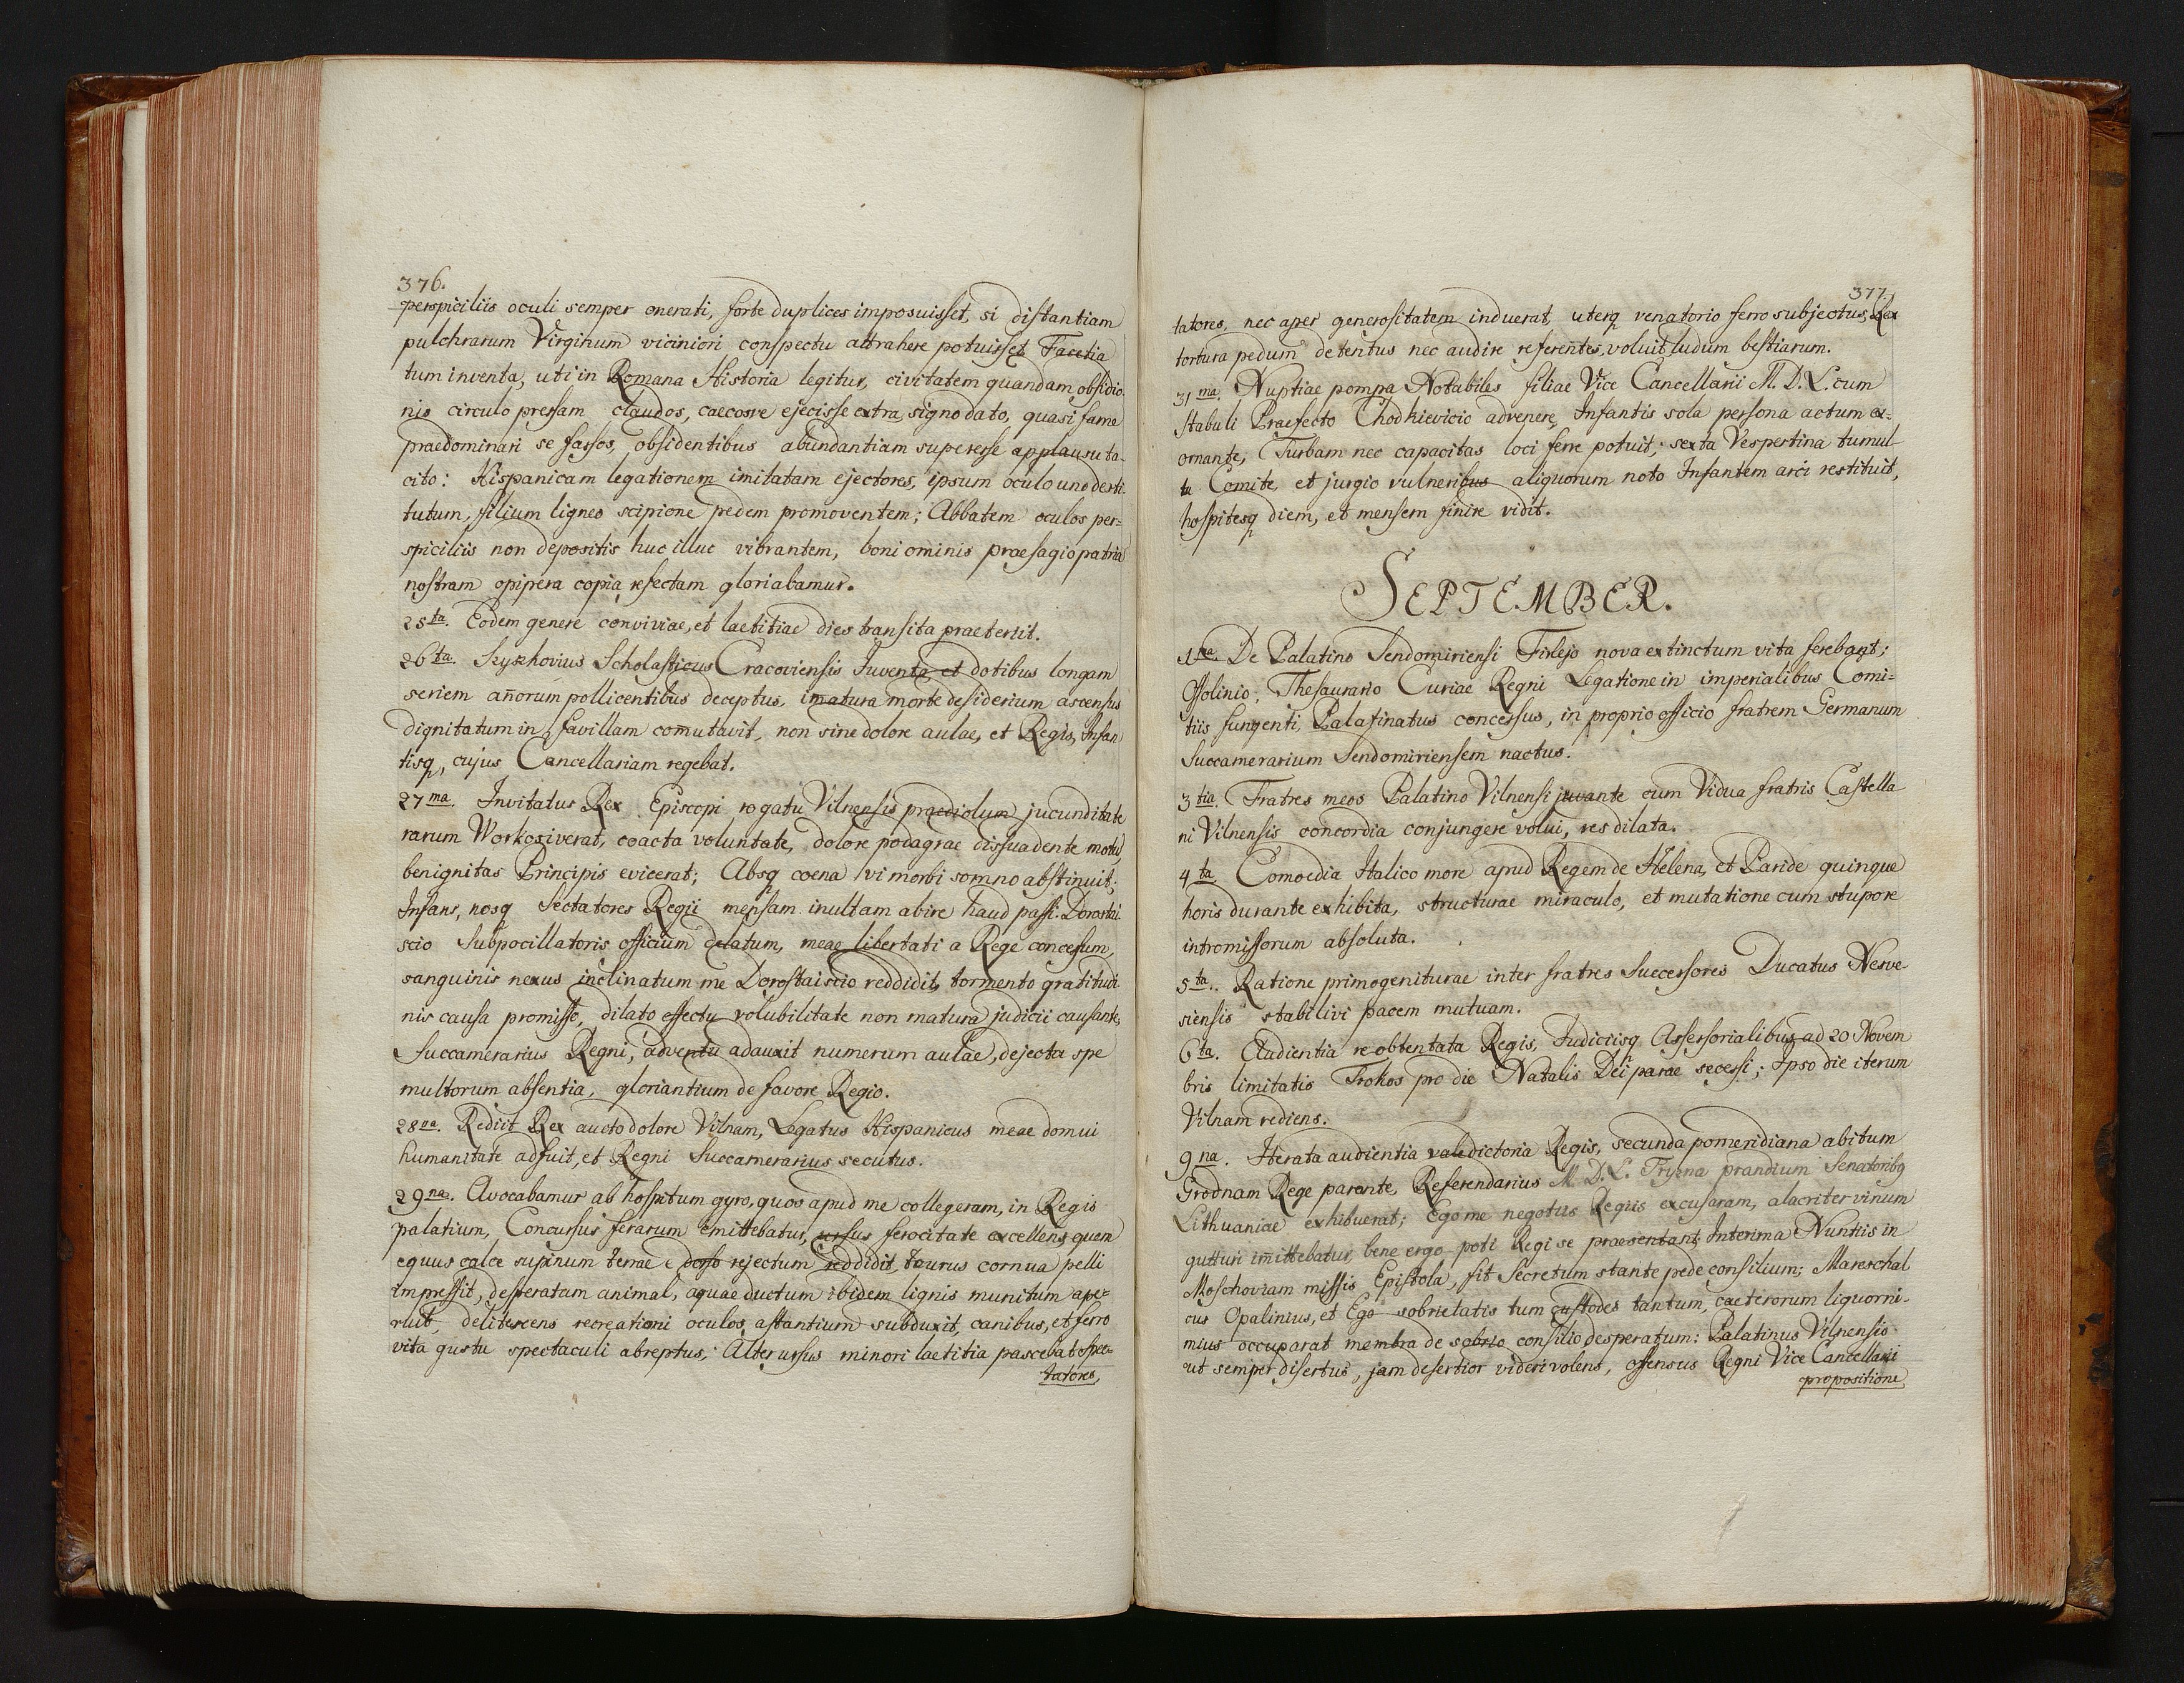 376.
perspiciliis oculi semper onerati, forte duplices imposuisset, si distantiam
pulchrarum Virginum viciniori conspectu attrahere potuisset Facetia
tum inventa, uti in Romana Historia legitur, civitatem quandam obsidio
nis circulo pressam claudos, caecosve ejecisse extra, signo dato, quasi fame
praedominari se fassos, obsidentibus abundantiam superesse applausu ta-
cito: Hispanicam legationem imitatam ejectores, ipsum oculo uno desti
tutum, filium ligneo scipione pedem promoventem; Abbatem oculos per=
spiciliis non depositis huc illuc vibrantem, boni ominis praesagio patria
nostram opipera copia refectam gloriabamur.
25ta. Eodem genere conviviae, et laetitiae dies transita praeteriit.
26ta. Szyszhovius Scholasticus Cracoviensis Juventa et dotibus longam
seriem añorum pollicentibus deceptus, imatura morte desiderium ascensus
dignitatum in favillam com̄utavit, non sine dolore aulae, et Regis, Infan
tisq, cujus Cancellariam regebat.
27ma. Invitatus Rex Episcopi rogatu Vilnensis praediolum jucunditate
rarum Workosiverat, coacta voluntate, dolore podagrae dissuadente motu,
benignitas Principis evicerat; Absq coena vi morbi somno abstinuit;
Infans, nosq Sectatores Regii mensam inultam abire haud passi. Dorostai
scio Subpocillatoris officium delatum, meae libertati a Rege concessum,
sanguinis nexus inclinatum me Dorostaiscio reddidit, tormento gratitudi
nis causa promisso, dilato effectu volubilitate non matura judicii causante,
Succamerarius Regni, adventu adauxit numerum aulae, dejecta spe
multorum absentia, gloriantium de favore Regio.
28va. Rediit Rex aucto dolore Vilnam, Legatus Hispanicus meae domui
humanitate adfuit, et Regni Succamerarius secutus.
29na. Avocabamur ab hospitum gyro, quos apud me collegeram, in Regis
palatium, Concursus ferarum emittebatur, ursus ferocitate excellens, quem
equus calce supinum terrae e dorso rejectum reddidit, taurus cornua pelli
impressit, desperatam animal, aquae ductum ibidem lignis munitum ape-
ruit, delitescens recreationi oculos astantium subduxit, canibus, et ferro
vita gustu spectaculi abreptus; Alter ursus minori laetitia pascebat spec=
tatores,
377.
tatores, nec aper generositatem induerat, uterq venatorio ferro subjectus, Rex
tortura pedum detentus nec audire referentes, voluit ludum bestiarum.
31ma. Nuptiae pompa Notabiles filiae Vice Cancellarii M. D. L. cum
Stabuli Praefecto Chodkievicio advenere, Infantis sola persona actum ex=
ornante, Turbam nec capacitas loci ferre potuit; sexta Vespertina tumul
tu Comite, et jurgio vulneribus aliquorum noto Infantem arci restituit,
hospitesq diem, et mensem finire vidit.
SEPTEMBER.
1ma. De Palatino Sendomiriensi Firlejo nova extinctum vita ferebant;
Ossolinio, Thesaurario Curiae Regni Legatione in imperialibus Comi=
tiis fungenti, Palatinatus concessus, in proprio officio fratrem Germanum
Succamerarium Sendomiriensem nactus.
3tia. Fratres meos Palatino Vilnensi juvante cum Vidua fratris Castella
ni Vilnensis concordia conjungere volui, res dilata.
4ta. Comoedia Italico more apud Regem de Helena, et Paride quinque
horis durante exhibita, structurae miraculo, et mutatione cum stupore
intromissorum absoluta.
5ta. Ratione primogeniturae inter fratres Successores Ducatus Nesve
siensis stabilivi pacem mutuam.
6ta. Audientia re obtentata Regis, Judiciisq Assessorialibus ad 20 Novem
bris limitatis Trokos pro die Natalis Dei parae secessi; Ipso die iterum
Vilnam rediens.
9na. Iterata audientia valedictoria Regis, secunda pomeridiana abitum
Grodnam Rege parante, Referendarius M. D. L. Tryzna prandium Senatoribq
Lithuaniae exhibuerat; Ego me negotiis Regiis excusaram, alacriter vinum
gutturi im̄ittebatur, bene ergo poti Regi se praesentant, Interima Nuntiis in
Moschoviam missis Epistola, fit Secretum stante pede consilium; Mareschal
cus Opalinius, et Ego sobrietatis tum custodes tantum, caeterorum liquorni-
mius occuparat membra de sobrio consilio desperatum: Palatinus Vilnensis
ut semper disertus, jam desertior videri volens, offensus Regni Vice Cancellarii
propositione